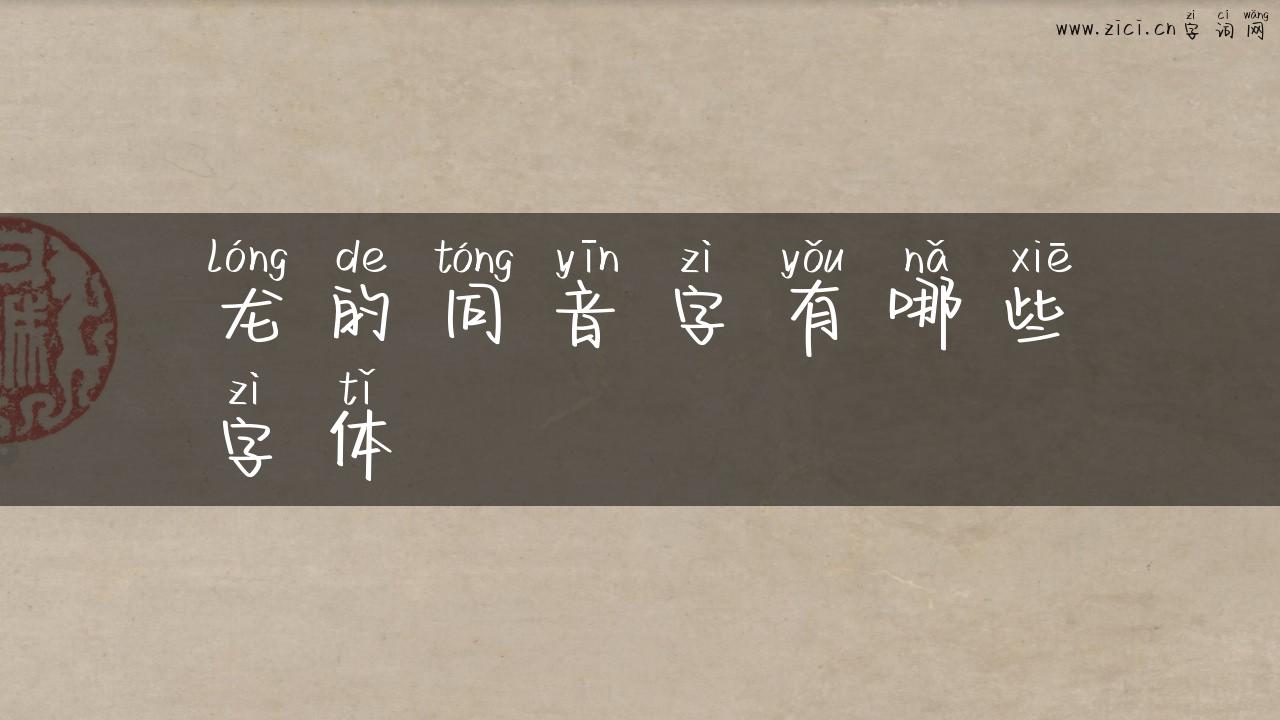 zì cí wǎng
www.zici.cn字词网
lóng de tóng yīn zì yǒu nǎ xiē
龙的同音字有哪些
zì tǐ
字体